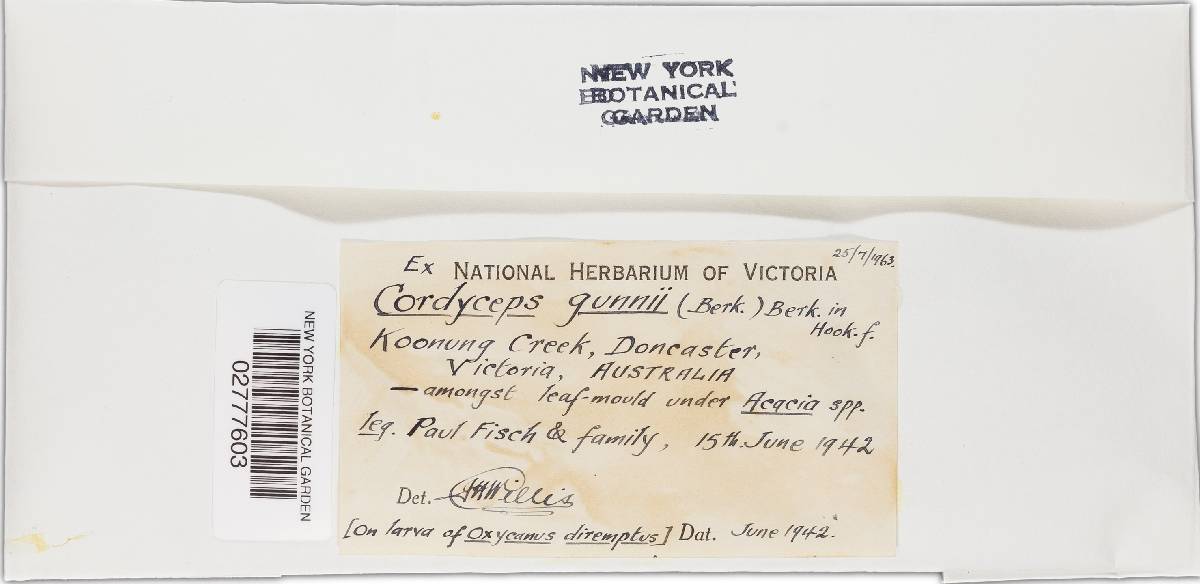 NEW YORK
BOTANICAL
GARDEN
25/7/1963.
Ex NATIONAL HERBARIUM OF VICTORIA
Cordyceps gunnii (Berk.) Berk. in
Hook. f.
Koonung Creek, Doncaster,
Victoria, AUSTRALIA
— amongst leaf-mould under Acacia spp.
leg. Paul Fisch & family, 15th June 1942
Det. JHWillis
[On larva of Oxycanus diremptus] Dat. June 1942.
NEW YORK BOTANICAL GARDEN
02777603